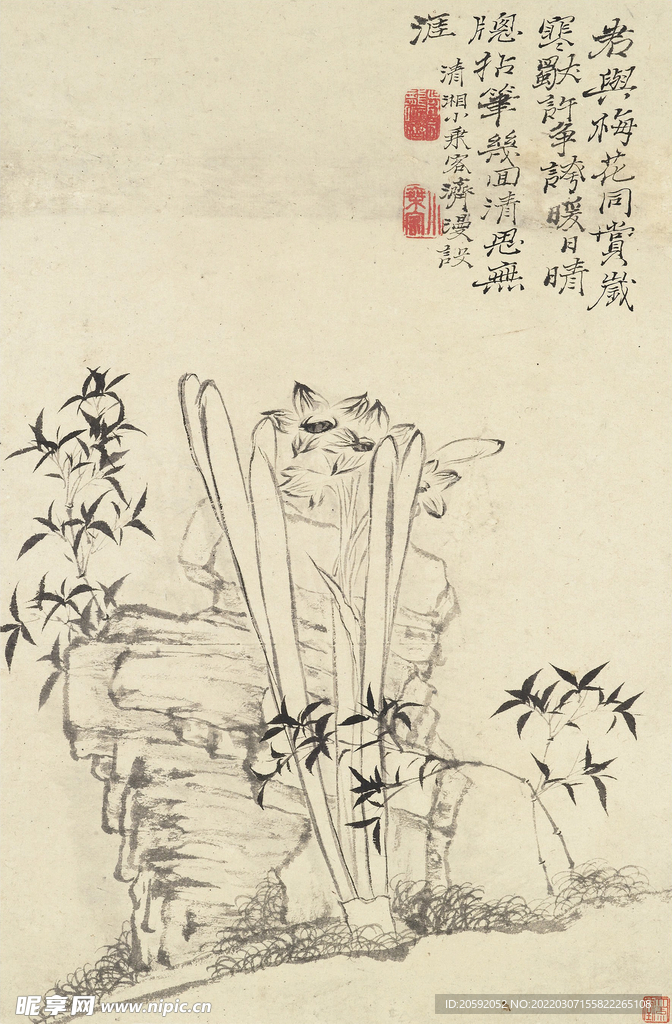 君與梅花同賞歲
寒獸許爭誇暖日晴
牕拈筆幾回清思無
涯
清湘小乘客濟漫設
昵享网 www.nipic.cn
ID:20592052 NO:20220307155822265108